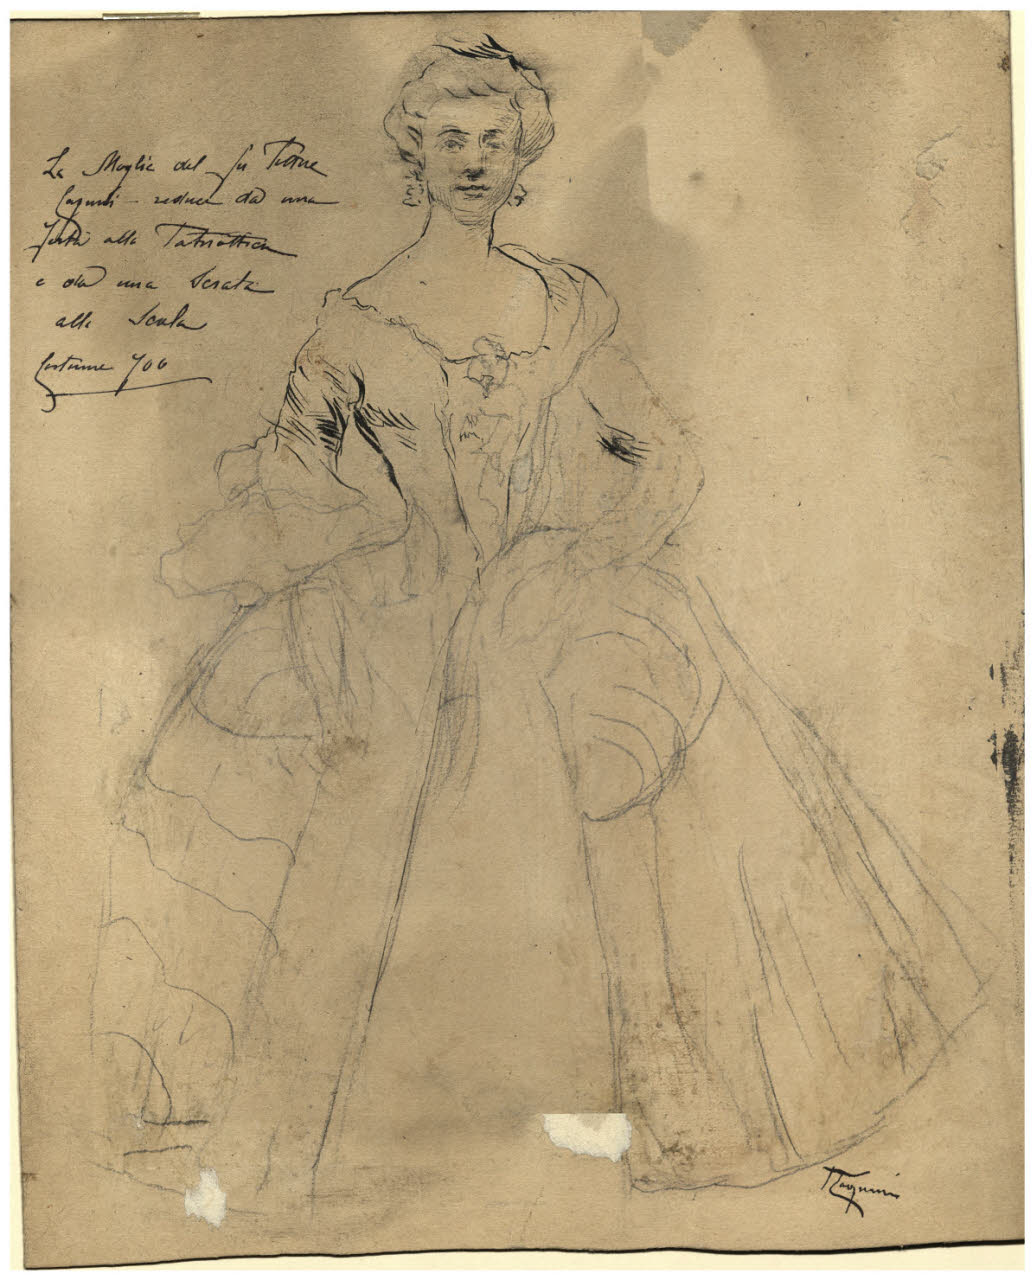 La Moglie del fu Pittore
Cagnoni - reduce da una
festa alla Patriottica
e da una serata
alla Scala
Costume 700